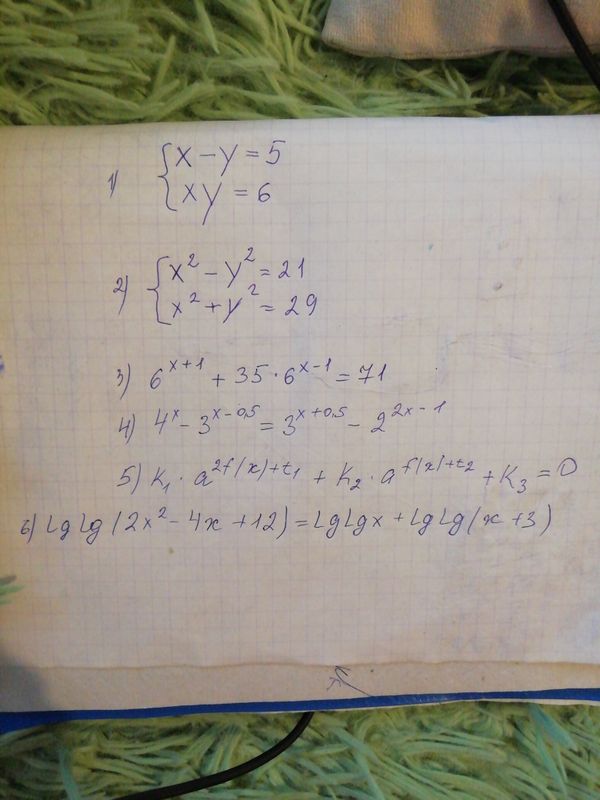 1) { x - y = 5
xy = 6
2) { x² - y² = 21
x² + y² = 29
3) 6^(x+1) + 35 · 6^(x-1) = 71
4) 4^x - 3^(x-0,5) = 3^(x+0,5) - 2^(2x-1)
5) K₁ · a^(2f(x)+t₁) + K₂ · a^(f(x)+t₂) + K₃ = 0
6) Lg Lg (2x² - 4x + 12) = Lg Lg x + Lg Lg (x + 3)